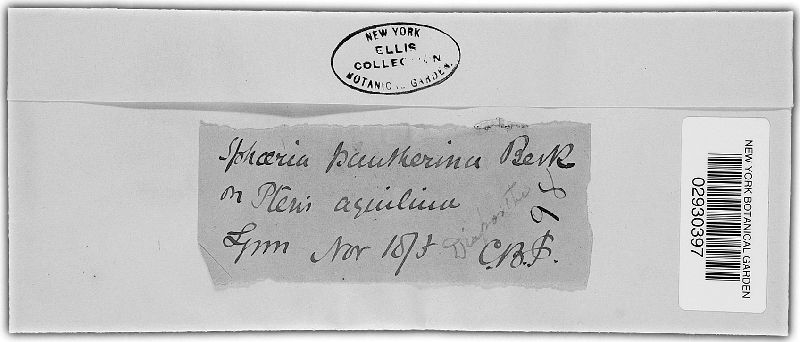 NEW YORK
ELLIS
COLLECTION
BOTANICAL GARDEN.
Sphæria pantherina Berk
on Pteris aquilina
Lynn Nov
C.B.P.
Diaporthe
98
NEW YORK BOTANICAL GARDEN
02930397